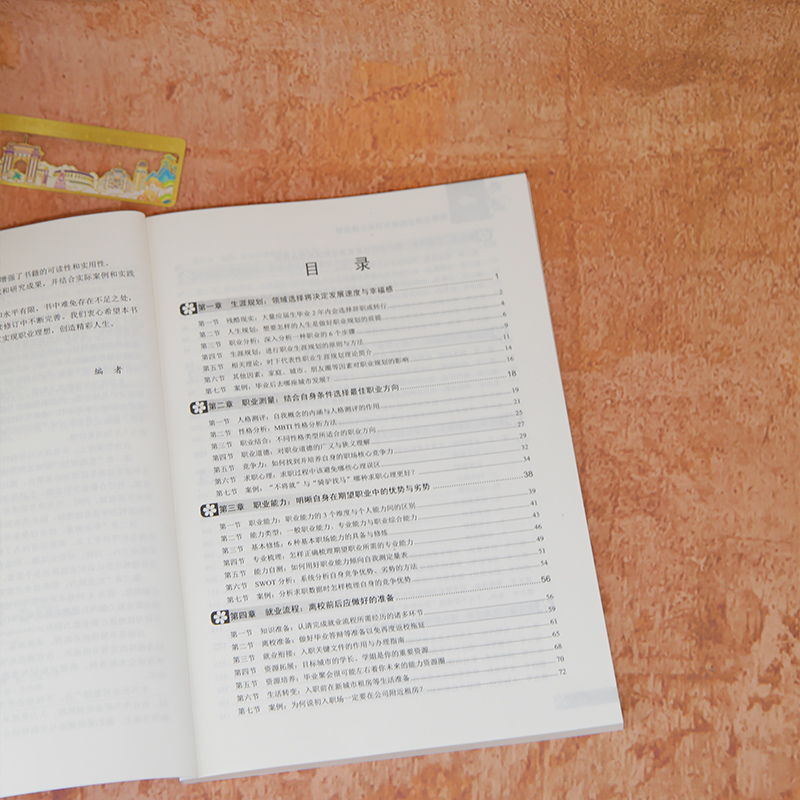 增强了书籍的可读性和实用性。
和研究成果，并结合实际案例和实践
水平有限，书中难免存在不足之处，
修订中不断完善。我们衷心希望本书
实现职业理想，创造精彩人生。
编 者
目 录
第一章 生涯规划：领域选择将决定发展速度与幸福感 1
第一节 残酷现实：大量应届生毕业2年内会选择辞职或转行 2
第二节 人生规划：想要怎样的人生是做好职业规划的前提 4
第三节 职业分析：深入分析一种职业的6个步骤 6
第四节 生涯规划：进行职业生涯规划的原则与方法 9
第五节 相关理论：时下代表性职业生涯规划理论简介 11
第六节 其他因素：家庭、城市、朋友圈等因素对职业规划的影响 14
第七节 案例：毕业后去哪座城市发展？ 16
第二章 职业测量：结合自身条件选择最佳职业方向 18
第一节 人格测评：自我概念的内涵与人格测评的作用 19
第二节 性格分析：MBTI性格分析方法 21
第三节 职业结合：不同性格类型所适合的职业方向 25
第四节 职业道德：对职业道德的广义与狭义理解 27
第五节 竞争力：如何找到并培养自身的职场核心竞争力 29
第六节 求职心理：求职过程中该避免哪些心理误区 32
第七节 案例：“不将就”与“骑驴找马”哪种求职心理更好？ 34
第三章 职业能力：明晰自身在期望职业中的优势与劣势 38
第一节 职业能力：职业能力的3个维度与个人能力间的区别 39
第二节 能力类型：一般职业能力、专业能力与职业综合能力 41
第三节 基本修炼：6种基本职场能力的具备与修炼 43
第四节 专业梳理：怎样正确梳理期望职业所需的专业能力 46
第五节 能力自测：如何用好职业能力倾向自我测定量表 49
第六节 SWOT分析：系统分析自身竞争优势、劣势的方法 51
第七节 案例：分析求职数据时怎样梳理自身的竞争优势 54
第四章 就业流程：离校前后应做好的准备 56
第一节 知识准备：认清完成就业流程所需经历的诸多环节 56
第二节 离校准备：做好毕业答辩等准备以免再度返校拖延 59
第三节 就业衔接：入职关键文件的作用与办理指南 61
第四节 资源拓展：目标城市的学长、学姐是你的重要资源 65
第五节 资源培养：毕业聚会很可能左右着你未来的能力资源圈 68
第六节 生活转变：入职前在新城市租房等生活准备 70
第七节 案例：为何说初入职场一定要在公司附近租房？ 72